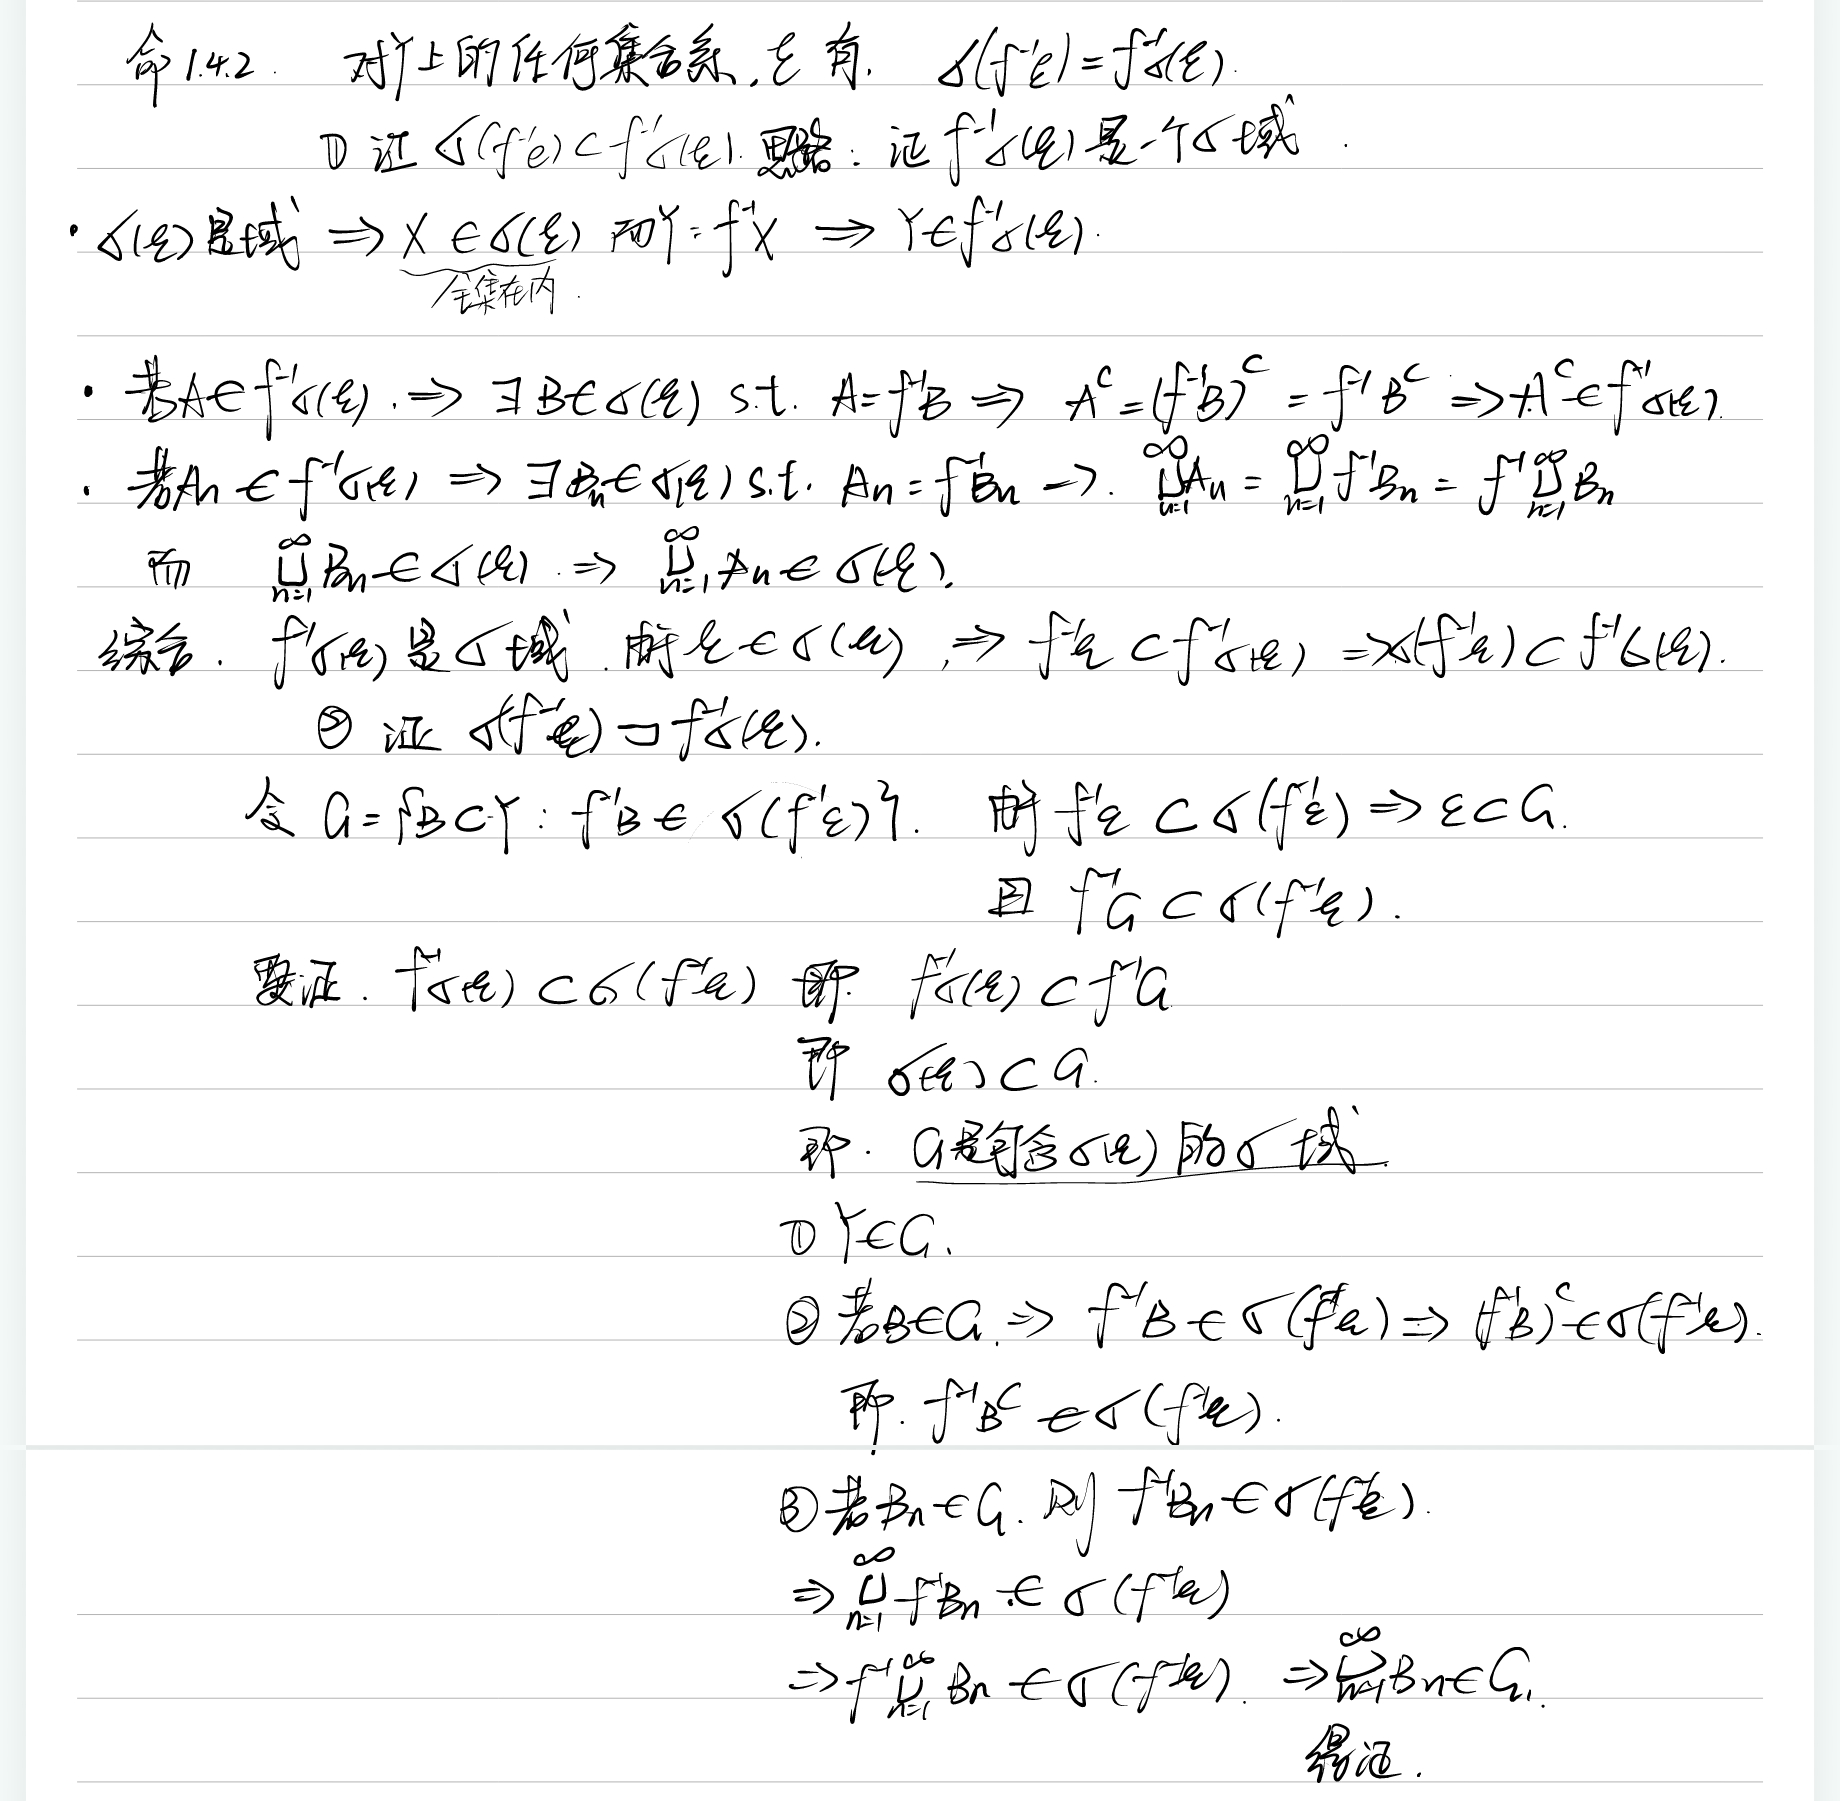 命1.4.2. 对Y上的任何集合系ℰ有. σ(f⁻¹ℰ)=f⁻¹σ(ℰ).
① 证 σ(f⁻¹ℰ)⊂f⁻¹σ(ℰ). 思路: 证f⁻¹σ(ℰ)是一个σ域.
· σ(ℰ)是域 ⇒ X∈σ(ℰ) 而Y=f⁻¹X ⇒ Y∈f⁻¹σ(ℰ).
全集在内.
· 若A∈f⁻¹σ(ℰ). ⇒ ∃B∈σ(ℰ) s.t. A=f⁻¹B ⇒ Aᶜ=(f⁻¹B)ᶜ=f⁻¹Bᶜ ⇒ Aᶜ∈f⁻¹σ(ℰ).
· 若An∈f⁻¹σ(ℰ) ⇒ ∃Bn∈σ(ℰ) s.t. An=f⁻¹Bn →. ∞⋃n=1 An = ∞⋃n=1 f⁻¹Bn = f⁻¹ ∞⋃n=1 Bn
而 ∞⋃n=1 Bn∈σ(ℰ). ⇒ ∞⋃n=1 An∈σ(ℰ).
综合. f⁻¹σ(ℰ)是σ域. 由于ℰ∈σ(ℰ), ⇒ f⁻¹ℰ⊂f⁻¹σ(ℰ) ⇒σ(f⁻¹ℰ)⊂f⁻¹σ(ℰ).
② 证 σ(f⁻¹ℰ)⊃f⁻¹σ(ℰ).
令 G={B⊂Y: f⁻¹B∈σ(f⁻¹ℰ)}. 由于f⁻¹ℰ⊂σ(f⁻¹ℰ) ⇒ ℰ⊂G.
且 f⁻¹G⊂σ(f⁻¹ℰ).
要证. f⁻¹σ(ℰ)⊂σ(f⁻¹ℰ) 即. f⁻¹σ(ℰ)⊂f⁻¹G
即 σ(ℰ)⊂G.
即. G是包含σ(ℰ)的σ域.
① Y∈G.
② 若B∈G. ⇒ f⁻¹B∈σ(f⁻¹ℰ) ⇒ (f⁻¹B)ᶜ∈σ(f⁻¹ℰ).
即. f⁻¹Bᶜ∈σ(f⁻¹ℰ).
③ 若Bn∈G. 则 f⁻¹Bn∈σ(f⁻¹ℰ).
⇒ ∞⋃n=1 f⁻¹Bn∈σ(f⁻¹ℰ)
⇒ f⁻¹ ∞⋃n=1 Bn∈σ(f⁻¹ℰ). ⇒ ∞⋃n=1 Bn∈G.
得证.